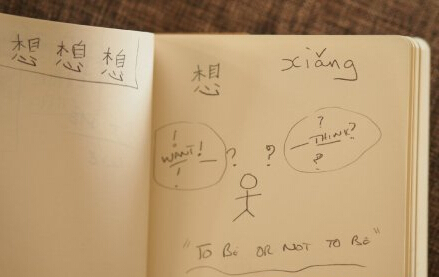 想 想 想
想 xiǎng
!
WANT!
!
? ?
?
THINK?
?
"TO BE OR NOT TO BE"